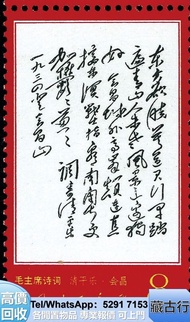 东方欲晓莫道君行早
踏遍青山人未老风景这边独
好会昌城外高峰颠连直
接东溟战士指看南粤更
加郁郁葱葱 调寄清平乐
一九三四年 会昌山
毛主席诗词 清平乐·会昌
8
高價
回收
Tel/WhatsApp: 5291 7153
專業報價 可上門
藏古行